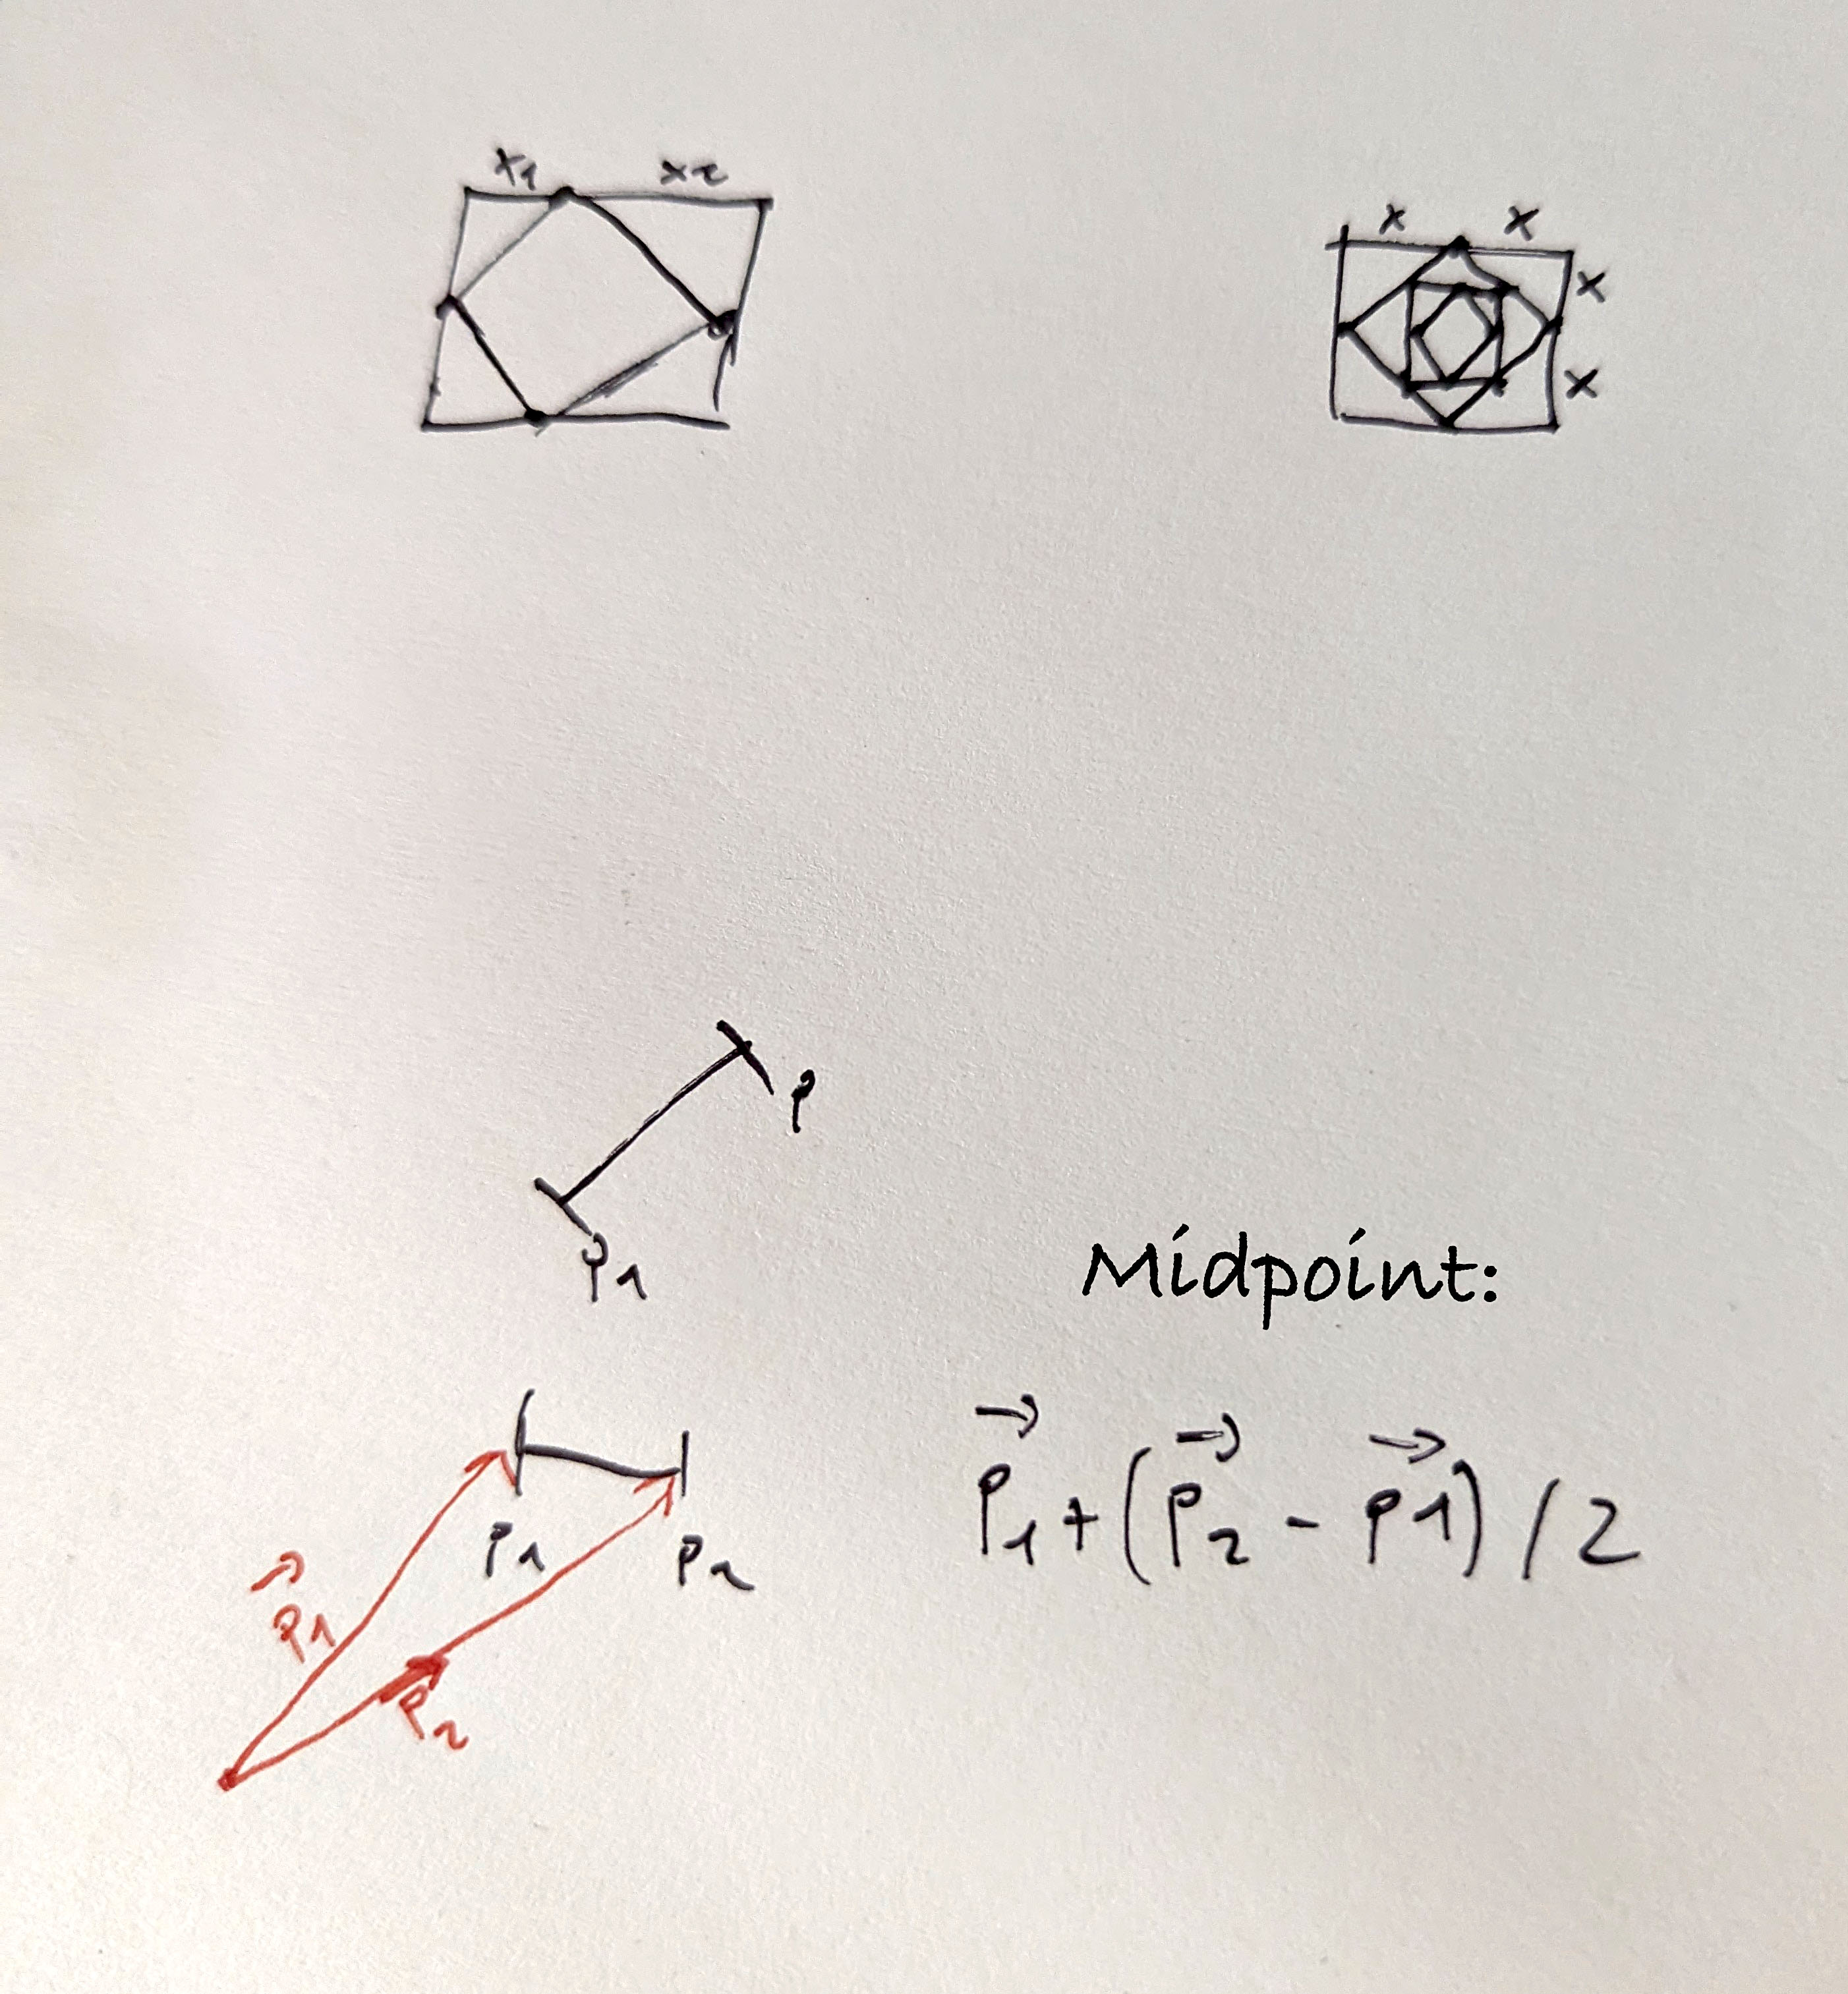 x1 x2
x x
x
x
P
P1
Midpoint:
P⃗1 + (P⃗2 - P⃗1) / 2
P1 P2
P⃗1
P2